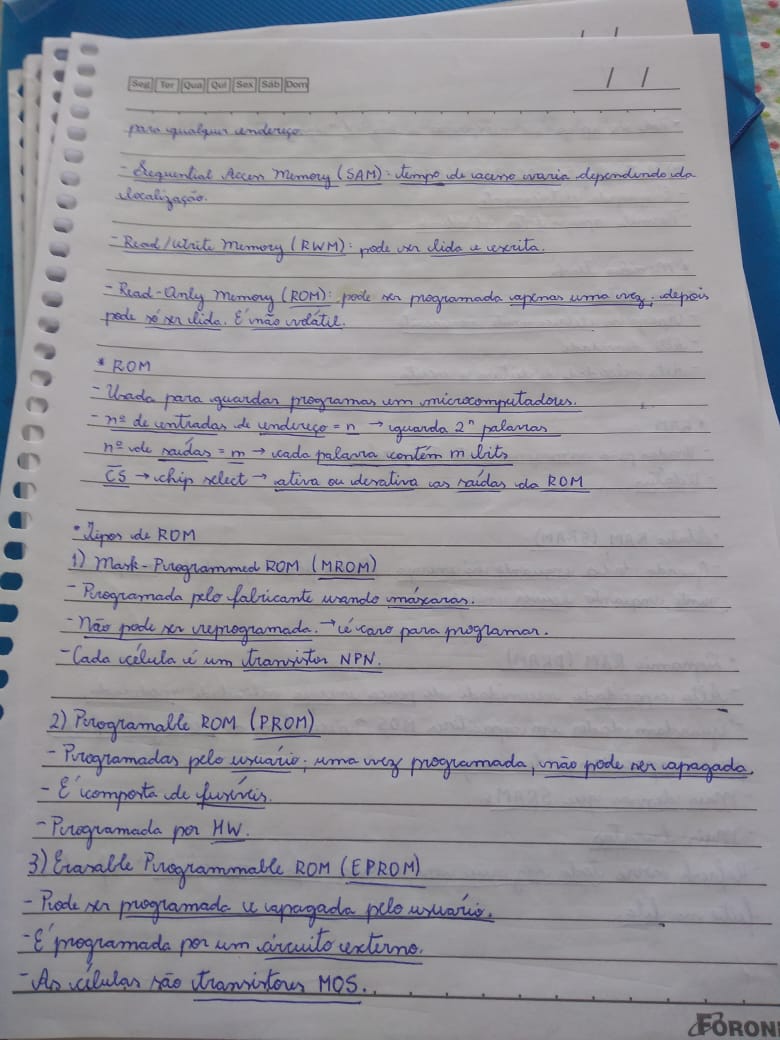 Seg Ter Qua Qui Sex Sáb Dom
/ /
para qualquer endereço.
- Sequential Access Memory (SAM): tempo de acesso varia dependendo da
localização.
- Read/Write Memory (RWM): pode ser lida e escrita.
- Read-Only Memory (ROM): pode ser programada apenas uma vez; depois
pode só ser lida. É não volátil.
* ROM
- Usada para guardar programas em microcomputadores.
- nº de entradas de endereço = n → guarda 2ⁿ palavras
nº de saídas = m → cada palavra contém m bits
C̅S̅ → chip select → ativa ou desativa as saídas da ROM
* Tipos de ROM
1) Mask-Programmed ROM (MROM)
- Programada pelo fabricante usando máscaras.
- Não pode ser reprogramada. → é caro para programar.
- Cada célula é um transistor NPN.
2) Programable ROM (PROM)
- Programadas pelo usuário; uma vez programada, não pode ser apagada.
- É composta de fusíveis.
- Programada por HW.
3) Erasable Programmable ROM (EPROM)
- Pode ser programada e apagada pelo usuário.
- É programada por um circuito externo.
- As células são transistores MOS.
FORONI